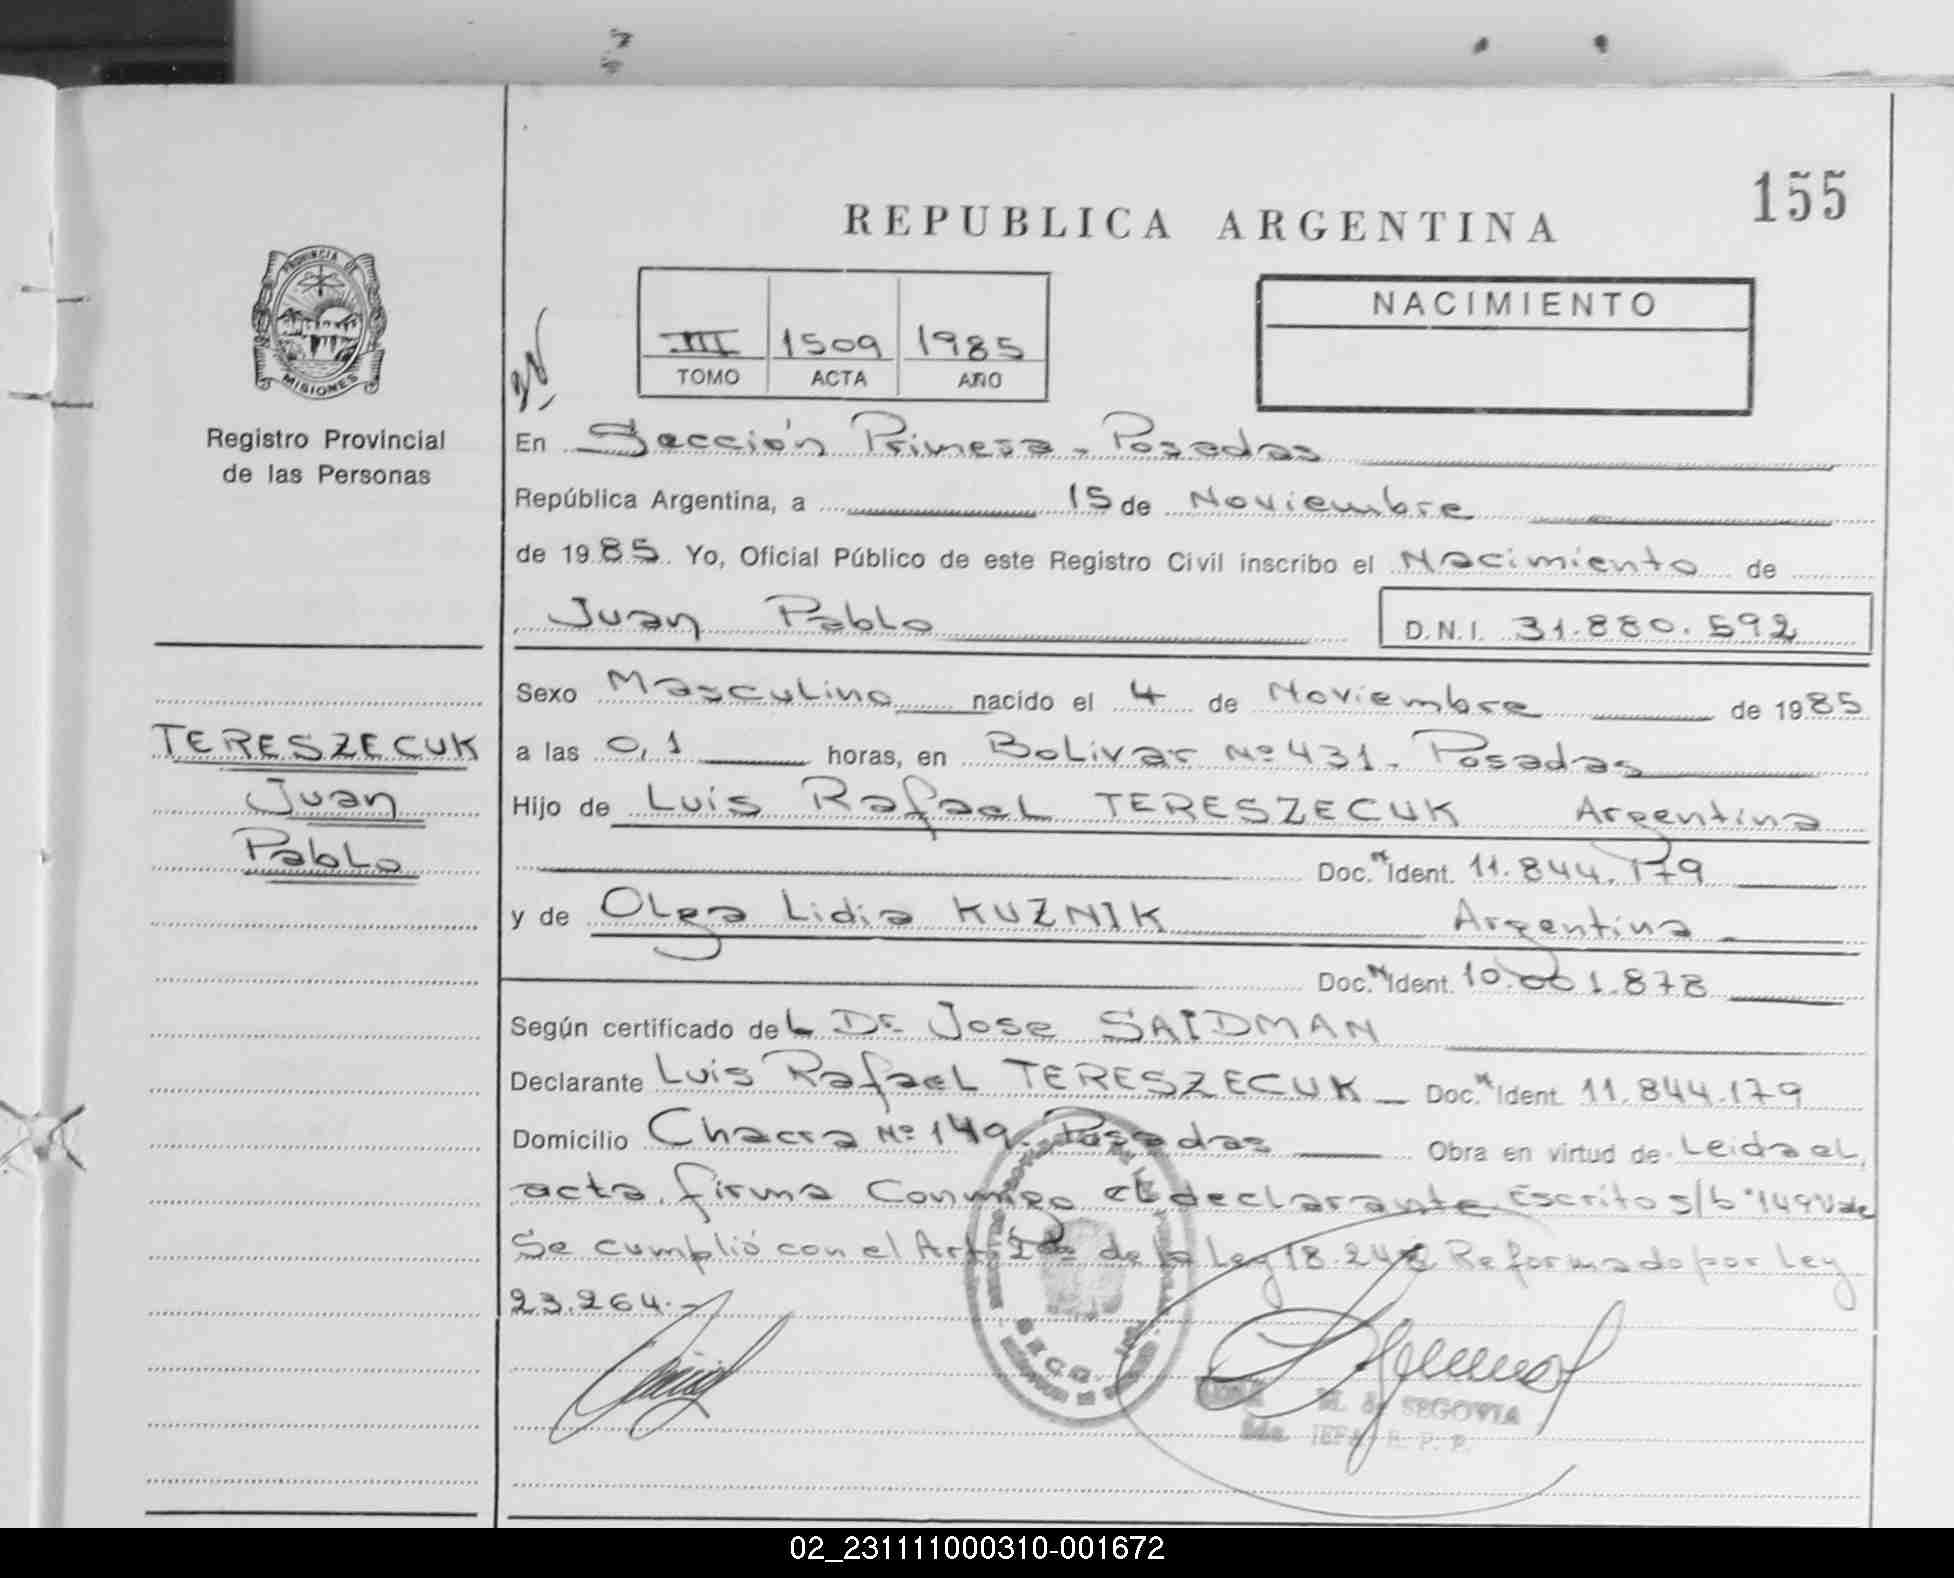 155
REPUBLICA ARGENTINA
PROVINCIA DE
MISIONES
Registro Provincial
de las Personas
III 1509 1985
TOMO ACTA AÑO
NACIMIENTO
En Sección Primera - Posadas
República Argentina, a 15 de Noviembre
de 1985. Yo, Oficial Público de este Registro Civil inscribo el Nacimiento de
Juan Pablo D.N.I. 31.880.592
Sexo Masculino nacido el 4 de Noviembre de 1985
TERESZECUK
Juan
Pablo
a las 0,1 horas, en Bolivar Nº 431 - Posadas
Hijo de Luis Rafael TERESZECUK Argentina
Doc. Ident. 11.844.179
y de Olga Lidia KUZNIK Argentina
Doc. Ident. 10.001.878
Según certificado del Dr. Jose SAIDMAN
Declarante Luis Rafael TERESZECUK - Doc. Ident. 11.844.179
Domicilio Chacra Nº 149. Posadas Obra en virtud de Leida el
acta, firma Conmigo el declarante. Escrito s/b "149 Vale
Se cumplió con el Art. 2do de la Ley 18.248 Reformado por Ley
23.264.-
SECC. 1ra.
M. de SEGOVIA
2da. JEFA R. P. P.
02_231111000310-001672